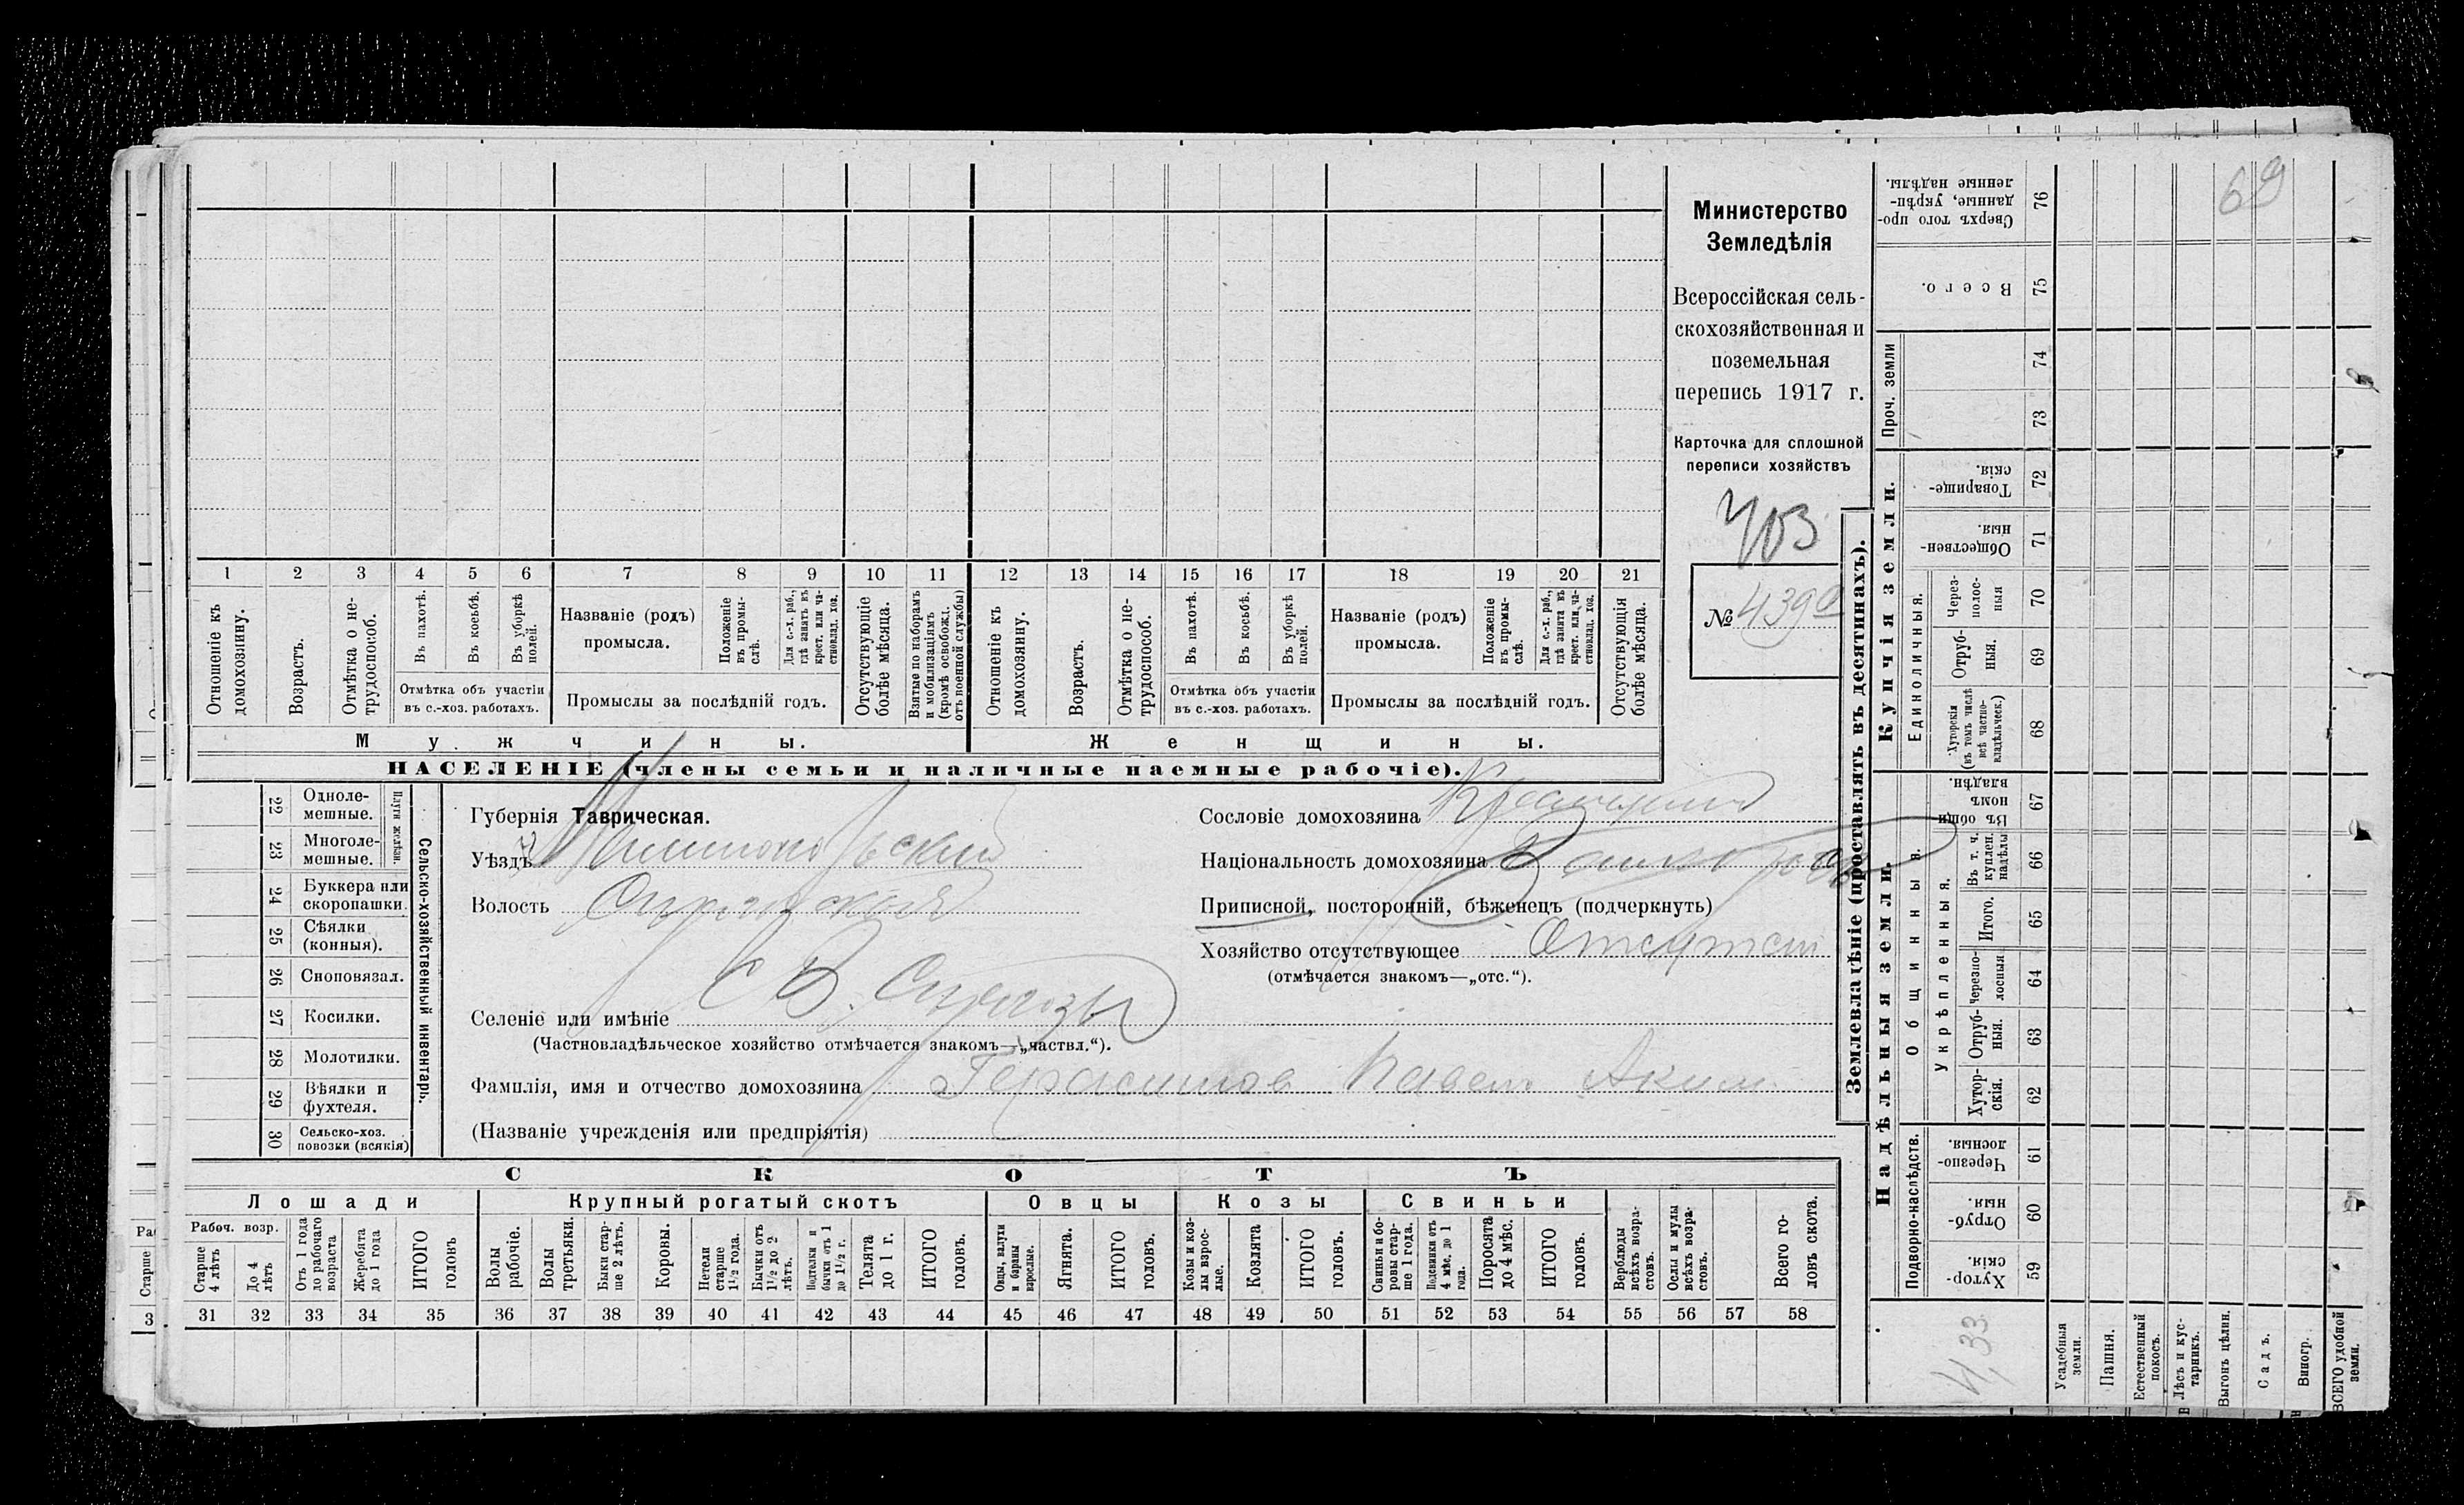 Министерство
Земледѣлія
Всероссійская сель-
скохозяйственная и
поземельная
перепись 1917 г.
Карточка для сплошной
переписи хозяйствъ
403
№ 439
69
1 2 3 4 5 6 7 8 9 10 11 12 13 14 15 16 17 18 19 20 21
Отношеніе къ домохозяину.
Возрастъ.
Отмѣтка о не-трудоспособ.
Въ пахотѣ.
Въ косьбѣ.
Въ уборкѣ полей.
Отмѣтка объ участіи
въ с.-хоз. работахъ.
Названіе (родъ)
промысла.
Положеніе въ промы-слѣ.
Для с.-х. раб., гдѣ занятъ въ крест. или ча-стновлад. хоз.
Промыслы за послѣдній годъ.
Отсутствующіе болѣе мѣсяца.
Взятые по наборамъ и мобилизаціямъ (кромѣ освобожд. отъ военной службы)
Отношеніе къ домохозяину.
Возрастъ.
Отмѣтка о не-трудоспособ.
Въ пахотѣ.
Въ косьбѣ.
Въ уборкѣ полей.
Отмѣтка объ участіи
въ с.-хоз. работахъ.
Названіе (родъ)
промысла.
Положеніе въ промы-слѣ.
Для с.-х. раб., гдѣ занята въ крест. или ча-стновлад. хоз.
Промыслы за послѣдній годъ.
Отсутствующія болѣе мѣсяца.
Мужчины.
Женщины.
НАСЕЛЕНІЕ (члены семьи и наличные наемные рабочіе).
22 Одноле-мешные.
23 Многоле-мешные.
Плуги желѣзн.
24 Буккера или скоропашки.
25 Сѣялки (конныя).
26 Сноповязал.
27 Косилки.
28 Молотилки.
29 Вѣялки и фухтеля.
30 Сельско-хоз. повозки (всякія)
Сельско-хозяйственный инвентарь.
Губернія Таврическая.
Уѣздъ
Волость
Селеніе или имѣніе
(Частновладѣльческое хозяйство отмѣчается знакомъ—„частвл.“).
Фамилія, имя и отчество домохозяина Герасимов Павел Аким
(Названіе учрежденія или предпріятія)
Сословіе домохозяина
Національность домохозяина
Приписной, посторонній, бѣженецъ (подчеркнуть)
Хозяйство отсутствующее Отсутст
(отмѣчается знакомъ—„отс.“).
СКОТЪ
Лошади
Крупный рогатый скотъ
Овцы
Козы
Свиньи
Рабоч. возр.
Старше 4 лѣтъ
До 4 лѣтъ
Отъ 1 года до рабочаго возраста
Жеребята до 1 года
ИТОГО головъ
Волы рабочіе.
Волы третьяки.
Быки стар-ше 2 лѣтъ.
Коровы.
Нетели старше 1½ года.
Бычки отъ 1½ до 2 лѣтъ.
Подтелки и бычки отъ 1 до 1½ г.
Телята до 1 г.
ИТОГО головъ.
Овцы, валухи и бараны взрослые.
Ягнята.
ИТОГО головъ.
Козы и коз-лы взрос-лые.
Козлята
ИТОГО головъ.
Свиньи и бо-ровы стар-ше 1 года.
Подсвинки отъ 4 мѣс. до 1 года.
Поросята до 4 мѣс.
ИТОГО головъ.
Верблюды всѣхъ возра-стовъ.
Ослы и мулы всѣхъ возра-стовъ.
Всего го-ловъ скота.
31 32 33 34 35 36 37 38 39 40 41 42 43 44 45 46 47 48 49 50 51 52 53 54 55 56 57 58
Землевладѣніе (проставлять въ десятинахъ).
Сверхъ того про-данные, укрѣп-ленные надѣлы. 76
Всего. 75
Проч. земли
74
73
Купчія земли.
Товарище-скія. 72
Обществен-ныя. 71
Единоличныя.
Через-полос-ныя 70
Отруб-ныя. 69
Хуторскія (въ томъ числѣ всѣ частно-владѣльческ.) 68
Надѣльныя земли.
Общинныя.
Въ общин-номъ владѣн. 67
Въ т. ч. куплен. надѣлы 66
Укрѣпленныя.
Итого. 65
Черезпо-лосныя. 64
Отруб-ныя. 63
Хутор-скія. 62
Подворно-наслѣдств.
Черезпо-лосныя. 61
Отруб-ныя. 60
Хутор-скія. 59
Усадебныя земли.
Пашня.
Естественный покосъ.
Лѣсъ и кус-тарникъ.
Выгонъ цѣлин.
Садъ.
Виногр.
ВСЕГО удобной земли.
Старше
3